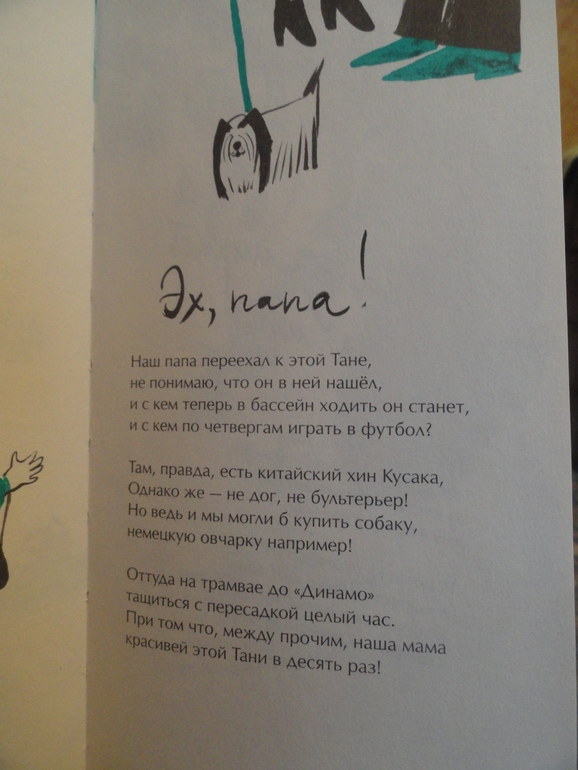 Эх, папа!
Наш папа переехал к этой Тане,
не понимаю, что он в ней нашёл,
и с кем теперь в бассейн ходить он станет,
и с кем по четвергам играть в футбол?
Там, правда, есть китайский хин Кусака,
Однако же — не дог, не бультерьер!
Но ведь и мы могли б купить собаку,
немецкую овчарку например!
Оттуда на трамвае до «Динамо»
тащиться с пересадкой целый час.
При том что, между прочим, наша мама
красивей этой Тани в десять раз!